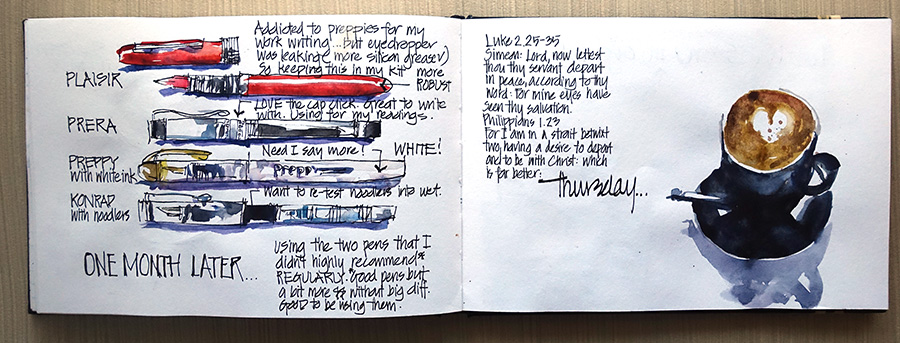 Addicted to preppies for my
work writing... but eyedropper
was leaking (more silicon grease√)
So keeping this in my kit more
ROBUST
PLAISIR
LOVE the cap click. Great to write
with. Using for my readings.
PRERA
Need I say more! WHITE!
PREPPY
with white ink
Preppy
Want to re-test noodlers into wet.
KONRAD
with noodlers
ONE MONTH LATER...
Using the two pens that I
didn't highly recommend*
REGULARLY. *Good pens but
a bit more $$ without big diff.
Good to be using them.
Luke 2.25-35
Simeon: Lord, now lettest
thou thy servant depart
in peace, according to thy
word: For mine eyes have
seen thy salvation.
Philippians 1.23
For I am in a strait betwixt
two, having a desire to depart
and to be with Christ: which
is far better:
Thursday...